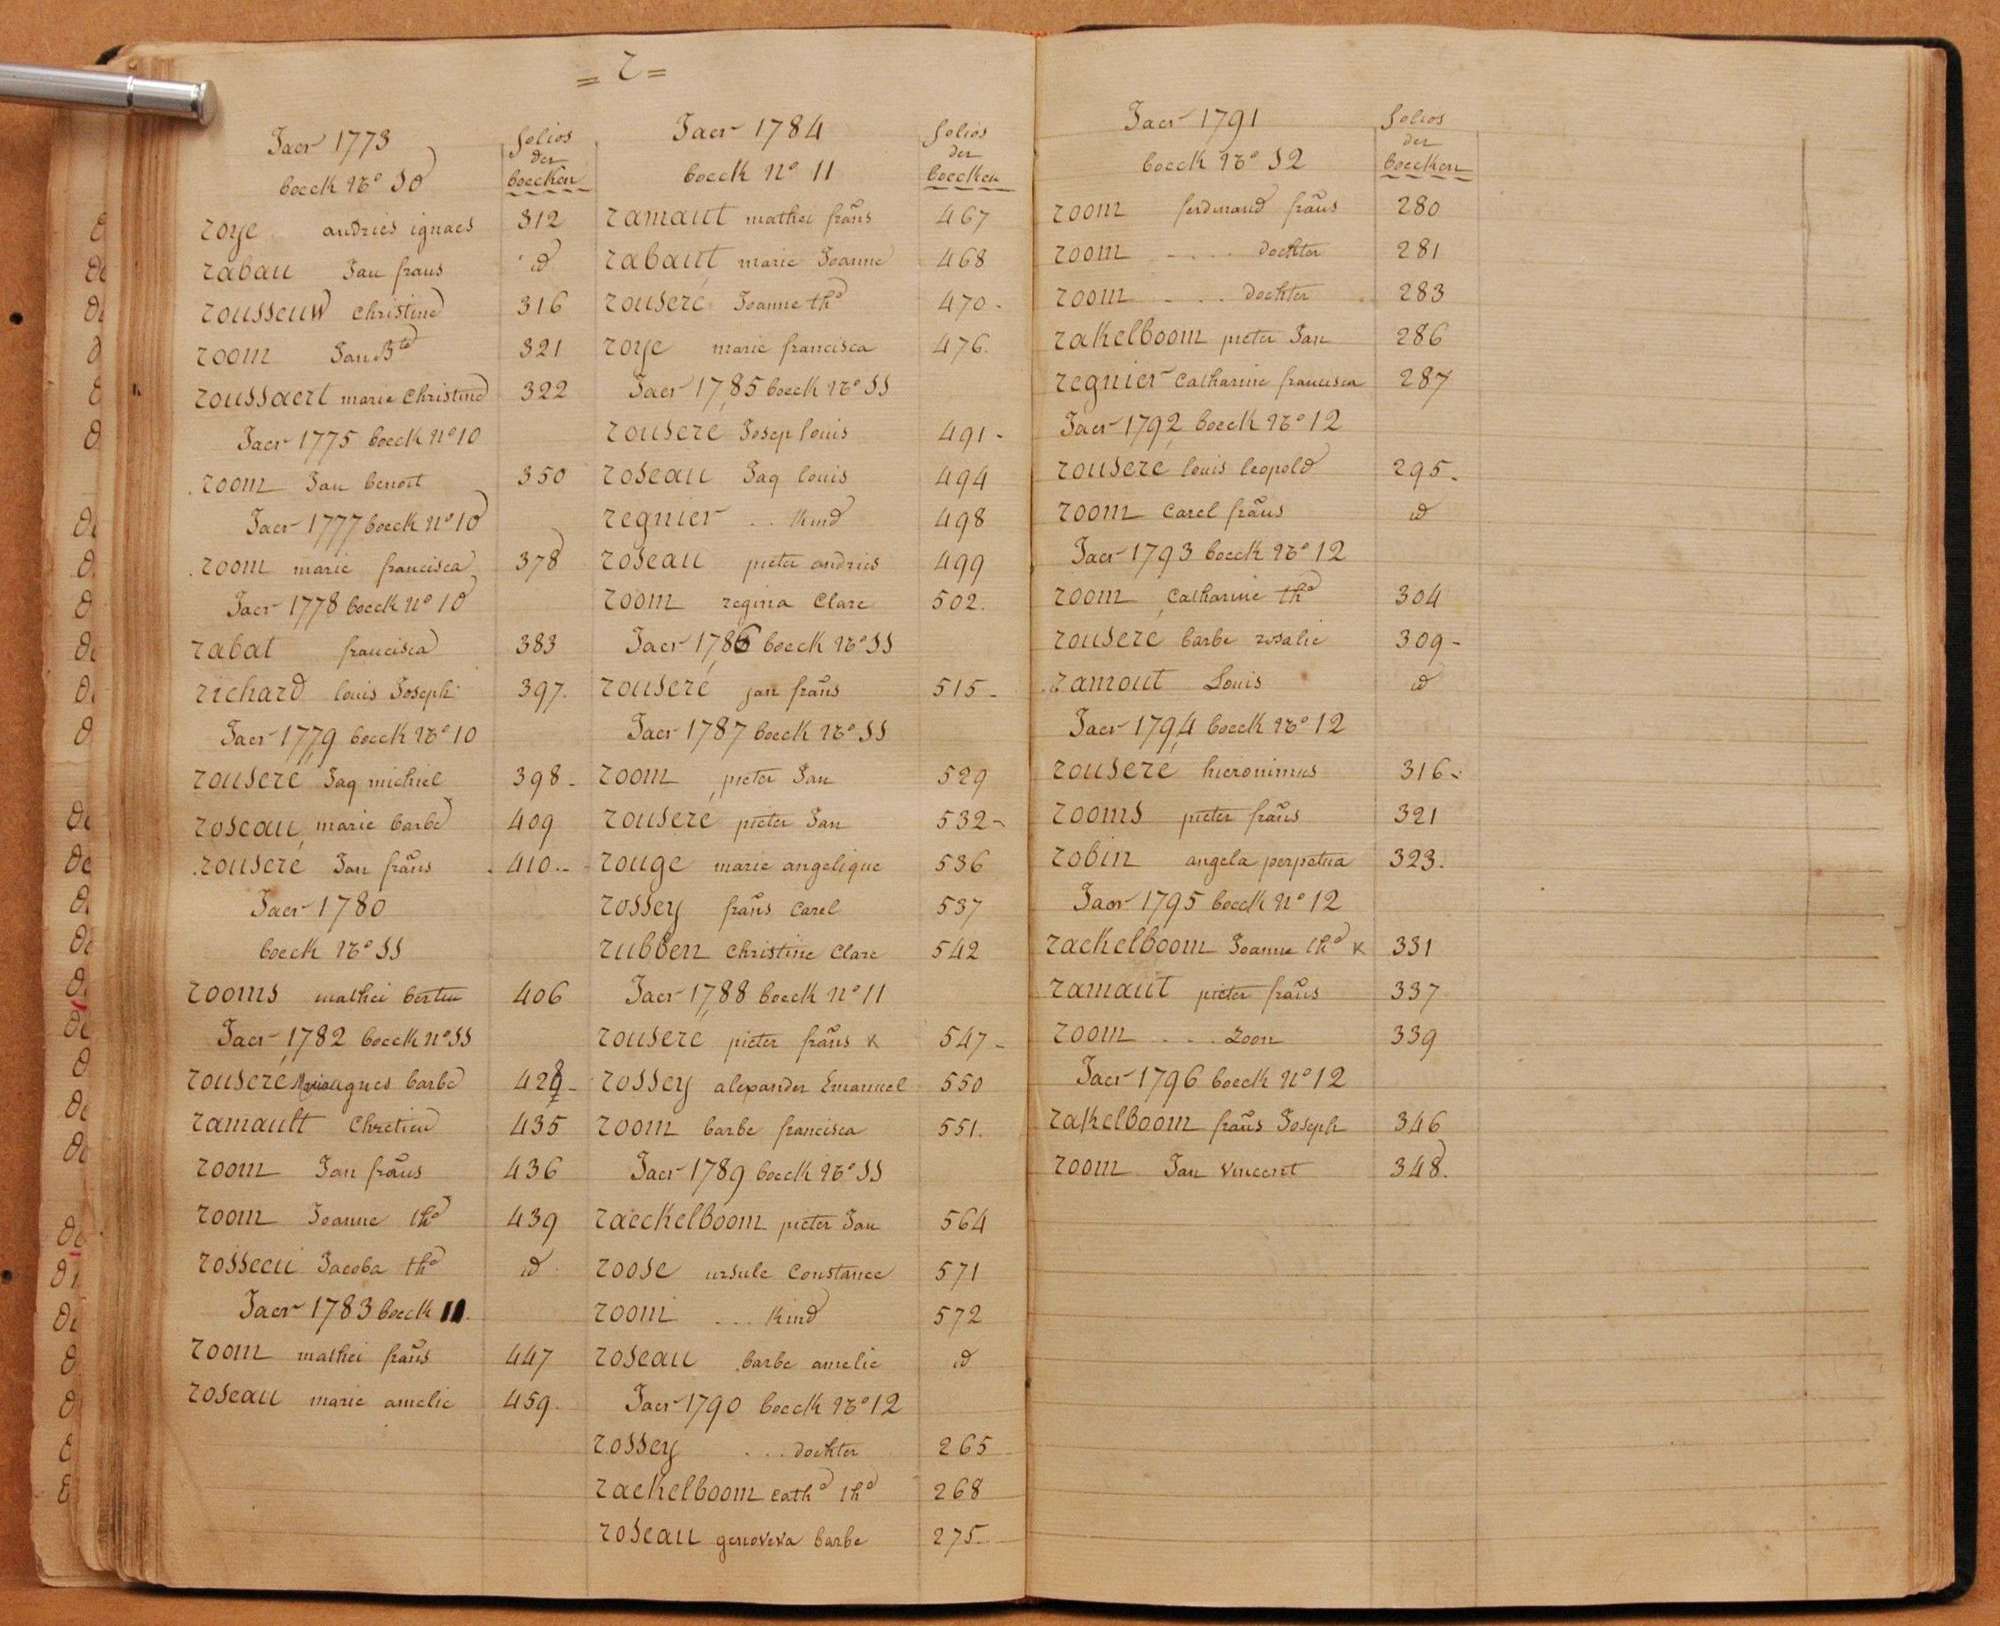 = r =
Jaer 1773
boeck No 10
folios
der
boecken
roye andries ignaes 312
rabau Jan frans id
rousseuw christine 316
room Jan Bte 321
roussaert marie christine 322
Jaer 1775 boeck No 10
room Jan benoit 350
Jaer 1777 boeck No 10
room marie francisca 378
Jaer 1778 boeck No 10
rabat francisca 383
richard louis Joseph 397.
Jaer 1779 boeck No 10
rouseré Jaq michiel 398 -
roseau marie barbe 409
rouseré Jan frans 410 --
Jaer 1780
boeck No 11
rooms mathei bertin 406
Jaer 1782 boeck No 11
rouseré Maria agnes barbe 428 -
ramault Chretien 435
room Jan frans 436
room Joanne tha 439
rosseeu Jacoba tha id
Jaer 1783 boeck 11.
room mathei frans 447
roseau marie amelie 459.
Jaer 1784
boeck No 11
folios
der
boecken
ramaut mathei frans 467
rabaut marie Joanne 468
rouseré Joanne tha 470 -
roye marie francisca 476.
Jaer 1785 boeck No 11
rouseré Josep louis 491 -
roseau Jaq louis 494
regnier .. kind 498
roseau pieter andries 499
room regina Clare 502.
Jaer 1786 boeck No 11
rouseré jan frans 515 -
Jaer 1787 boeck No 11
room pieter Jan 529
rouseré pieter Jan 532 -
rouge marie angelique 536
rossey frans Carel 537
rubben Christine Clare 542
Jaer 1788 boeck No 11
rouseré pieter frans x 547 -
rossey alexander Emanuel 550
room barbe francisca 551.
Jaer 1789 boeck No 11
raeckelboom pieter Jan 564
roose ursule Constance 571
room ... kind 572
roseau barbe amelie id
Jaer 1790 boeck No 12
rossey ... dochter 265
rackelboom catha tha 268
roseau genoveva barbe 275.
Jaer 1791
boeck No 12
folios
der
boecken
room ferdinand frans 280
room .... dochter 281
room ... dochter 283
rakelboom pieter Jan 286
regnier Catharine francisca 287
Jaer 1792 boeck No 12
rouseré louis leopold 295 -
room Carel frans id
Jaer 1793 boeck No 12
room Catharine tha 304
rouseré barbe rosalie 309 -
ramout Louis id
Jaer 1794 boeck No 12
rouseré hieronimus 316 -
rooms pieter frans 321
robin angela perpetua 323.
Jaer 1795 boeck No 12
rackelboom Joanne tha x 331
ramaut pieter frans 337
room .... Zoon 339
Jaer 1796 boeck No 12
rakelboom frans Joseph 346
room Jan Vincent 348.